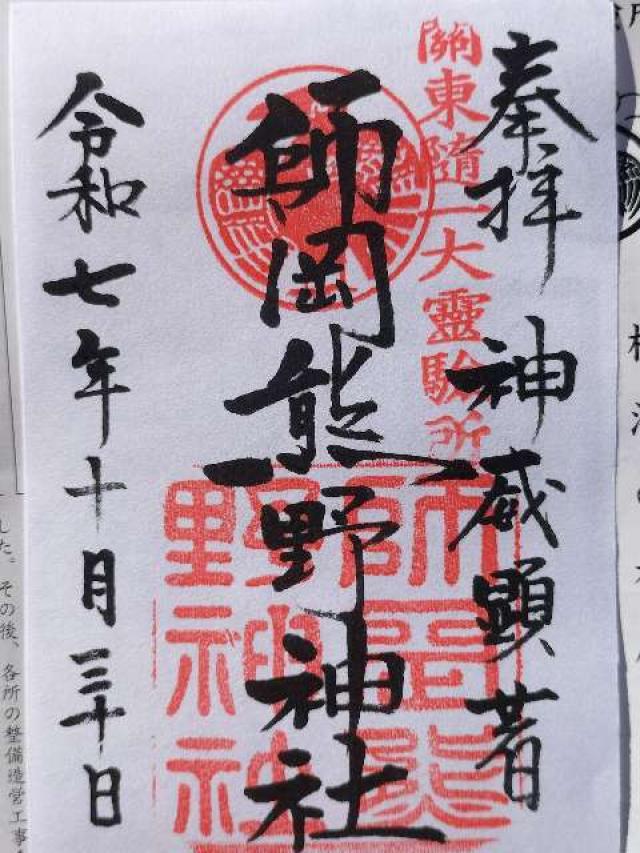 奉拝
神威顕著
關東随一大靈驗所
師岡熊野神社
師岡熊
野神社
令和七年十月三十日
した。その後、各所の整備造営工事